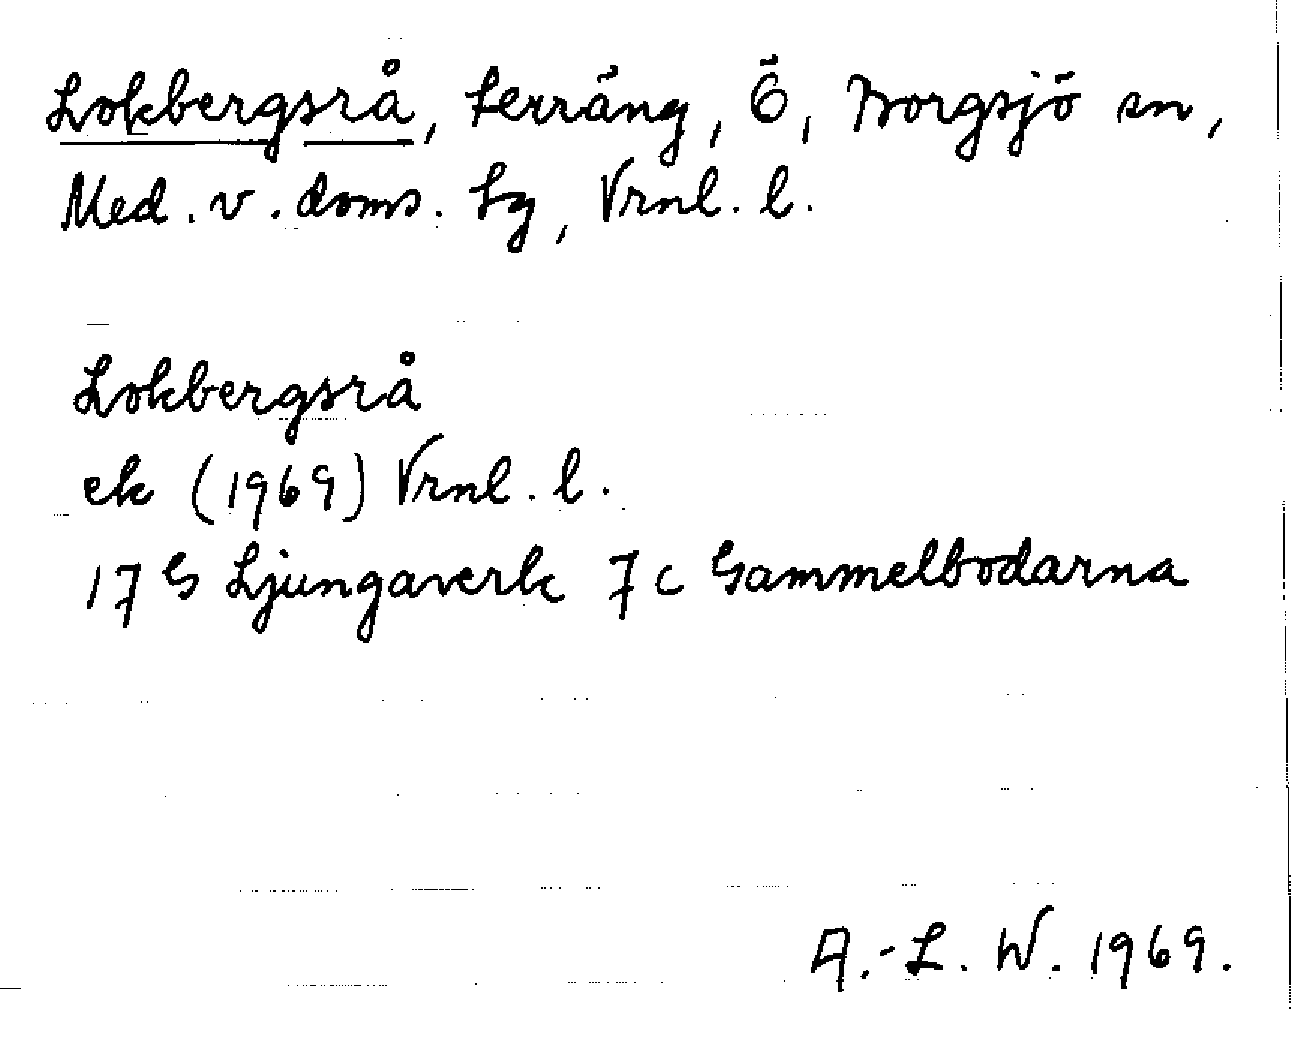 Lokbergsrå, terräng, Ö, Borgsjö sn,
Med. v. doms. tg, Vrnl. l.
Lokbergsrå
ek (1969) Vrnl. l.
17 G Ljungaverk 7 c Gammelbodarna
A.-L. W. 1969.